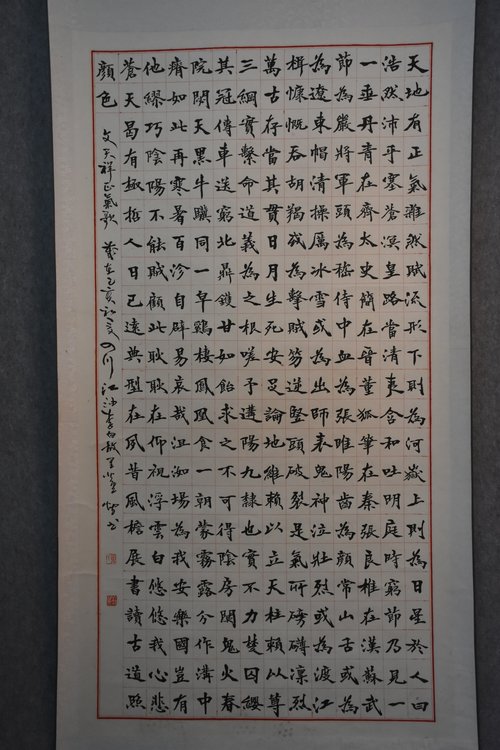 天地有正氣雜然賦流形下則為河嶽上則為日星於人曰
浩然沛乎塞蒼溟皇路當清夷含和吐明庭時窮節乃見一
一垂丹青在齊太史簡在晉董狐筆在秦張良椎在漢蘇武
節為嚴將軍頭為嵇侍中血為張睢陽齒為顏常山舌或為
為遼東帽清操厲冰雪或為出師表鬼神泣壯烈或為渡江
楫慷慨吞胡羯或為擊賊笏逆豎頭破裂是氣所磅礴凜烈
萬古存當其貫日月生死安足論地維賴以立天柱賴以尊
三綱實繫命道義為之根嗟予遘陽九隸也實不力楚囚纓
其冠傳車送窮北鼎鑊甘如飴求之不可得陰房闃鬼火春
院閟天黑牛驥同一皁鷄棲鳳凰食一朝蒙霧露分作溝中
瘠如此再寒暑百沴自辟易哀哉沮洳場為我安樂國豈有
他繆巧陰陽不能賊顧此耿耿在仰視浮雲白悠悠我心悲
蒼天曷有極哲人日已遠典型在夙昔風檐展書讀古道照
顏色
文天祥正氣歌 歲在乙亥初夏 四川江油李白故里 書